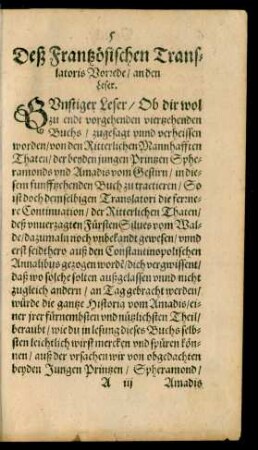 5
Deß Frantzösischen Trans-
latoris Vorrede/ an den
Leser.
GVnstiger Leser/ Ob dir wol
zu endt vorgehenden viertzehenden
Buchs/ zugesagt vnnd verheissen
worden/ von den Ritterlichen Mannhafften
Thaten/ der beyden jungen Printzen Sphe-
ramonds vnd Amadis vom Gestirn/ in die-
sem funfftzehenden Buch zu tractieren/ So
ist doch demselbigen Translatori die ferrne-
re Continuation/ der Ritterlichen Thaten/
deß vnuerzagten Fürsten Silues vom Wal-
de/ dazumaln noch vnbekandt gewesen/ vnnd
erst seidthero auß den Constantinopolischen
Annalibus gezogen wordē/ dich vergwissent/
daß wo solche solten außgelassen vnnd nicht
zugleich andern/ an Tag gebracht werden/
würde die gantze Historia vom Amadis/ ei-
ner jrer fürnembsten vnd nützlichsten Theil/
beraubt/ wie du in lesung dieses Buchs selb-
sten leichtlich wirst mercken vnd spüren kön-
nen/ auß der vrsachen wir von obgedachten
beyden Jungen Printzen/ Spheramond/
A iij Amadis